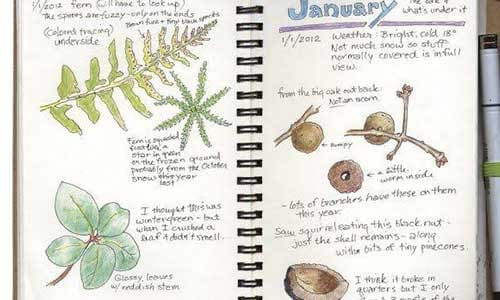 1/1/2012 Fern (will have to look up)
The spores are fuzzy - only on the ends
Brown fuzz + tiny black spores
(Colored tracing)
underside
Fern is squashed
flat like a
star in green
on the frozen ground
probably from the October
snows this year
last
I thought this was
wintergreen - but
when I crushed a
leaf it didn't smell.
Glossy leaves
w/ reddish stem
January
what's under it
1/1/2012 Weather: Bright, cold 18°
Not much snow so stuff
normally covered is in full
view.
from the big oak out back:
Not an acorn.
bumpy
a little
worm inside
- lots of branches have these on them
this year.
Saw squirrel eating this black nut -
just the shell remains - along
with bits of tiny pinecones.
I think it broke in
quarters but I only